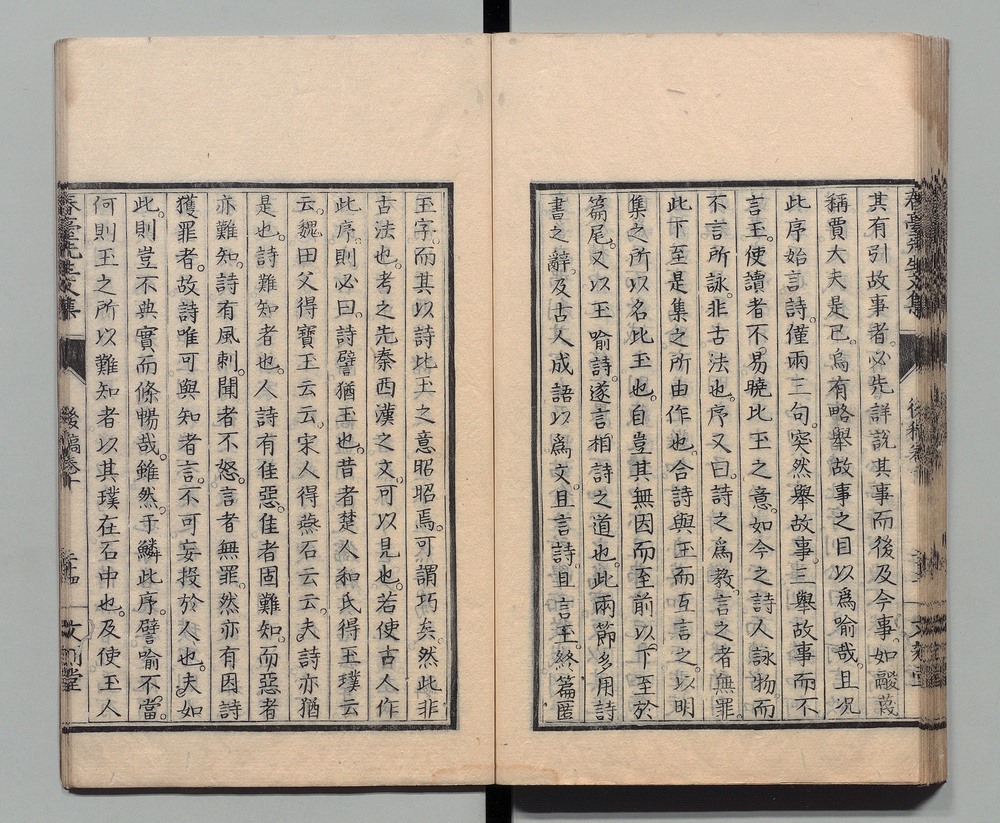 其有引故事者。必先詳說其事而後及今事。如鬷蔑
稱賈大夫是已。烏有略舉故事之目以為喻哉。且況
此序始言詩。僅兩三句。突然舉故事。三舉故事而不
言玉。使讀者不易曉比玉之意。如今之詩人詠物而
不言所詠。非古法也。序又曰。詩之為教。言之者無罪。
此下至是集之所由作也。合詩與玉而互言之。以明
集之所以名比玉也。自豈其無因而至前以下至於
篇尾。又以玉喻詩。遂言相詩之道也。此兩節多用詩
書之辭。及古人成語以為文。且言詩。且言玉。終篇匿
玉字。而其以詩比玉之意昭昭焉。可謂巧矣。然此非
古法也。考之先秦西漢之文。可以見也。若使古人作
此序。則必曰。詩譬猶玉也。昔者楚人和氏得玉璞云
云。魏田父得寶玉云云。宋人得燕石云云。夫詩亦猶
是也。詩難知者也。人詩有佳惡。佳者固難知。而惡者
亦難知。詩有風刺。聞者不怒。言者無罪。然亦有因詩
獲罪者。故詩唯可與知者言。不可妄投於人也。夫如
此。則豈不典實而條暢哉。雖然。于鱗此序。譬喻不當。
何則玉之所以難知者以其璞在石中也。及使玉人
春臺先生文集 後稿卷十 文刻堂